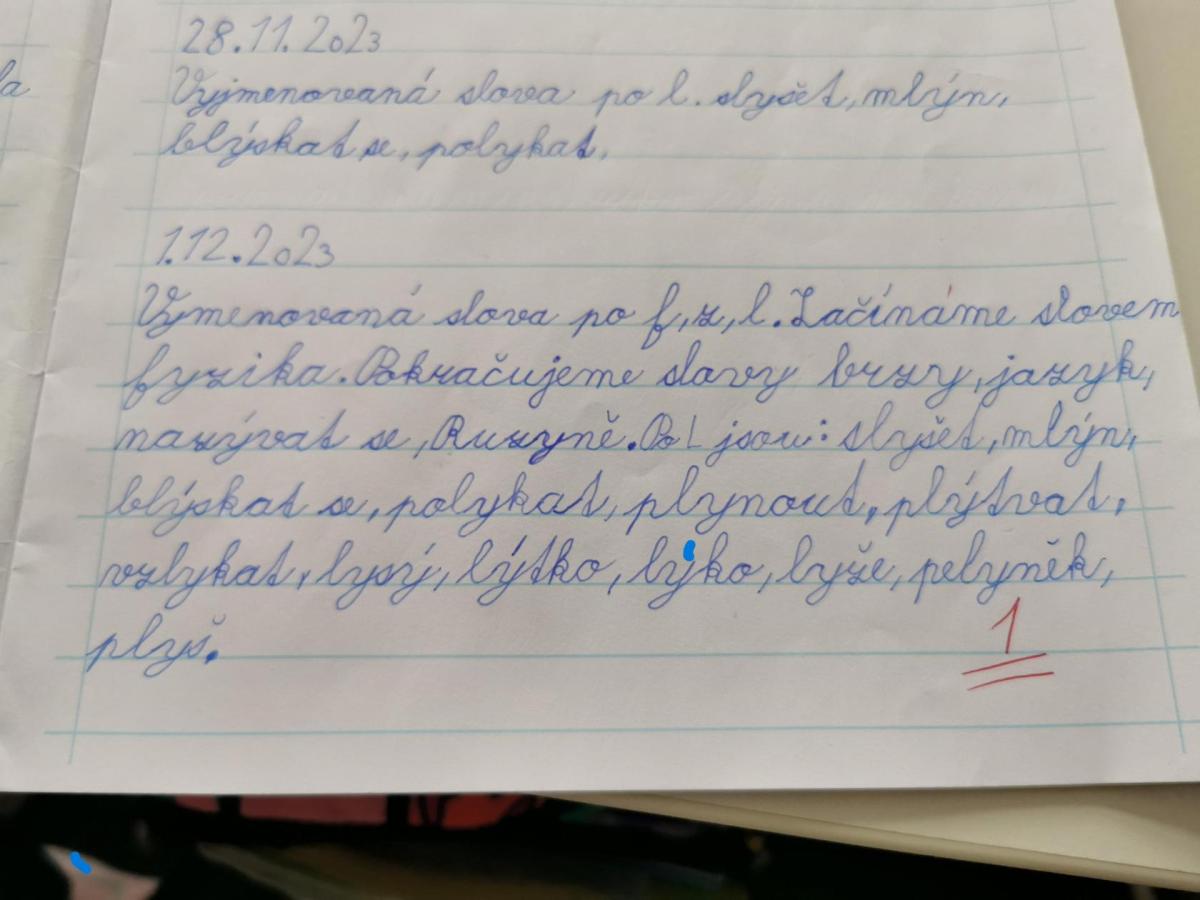 la
28.11.2023
Vyjmenovaná slova po l. slyšet, mlýn,
blýskat se, polykat.
1.12.2023
Vymenovaná slova po f, z, l. Začínáme slovem
fyzika. Pokračujeme slovy brzy, jazyk,
nazývat se, Ruzyně. Po l jsou: slyšet, mlýn,
blýskat se, polykat, plynout, plýtvat,
vzlykat, lysý, lýtko, lýko, lyže, pelyněk,
plyš.
1